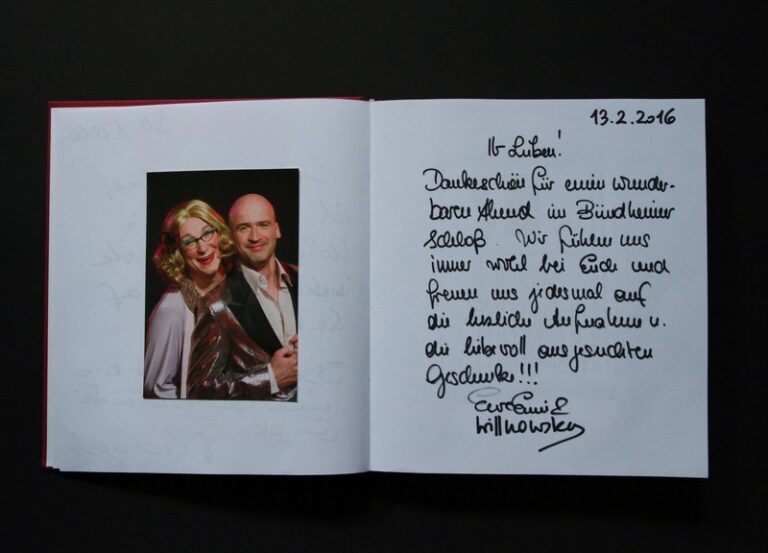 13.2.2016
Ihr Lieben!
Dankeschön für einen wunder-
baren Abend im Bündheimer
Schloß. Wir fühlen uns
immer wohl bei Euch und
freuen uns jedesmal auf
die herzliche Aufnahme u.
die liebevoll ausgesuchten
Geschenke!!!
Willnowsky